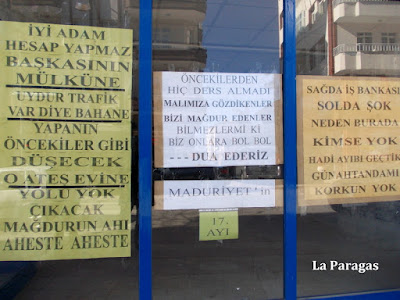 İYİ ADAM
HESAP YAPMAZ
BAŞKASININ
MÜLKÜNE
UYDUR TRAFİK
VAR DİYE BAHANE
YAPANIN
ÖNCEKİLER GİBİ
DÜŞECEK
O ATEŞ EVİNE
YOLU YOK
ÇIKACAK
MAĞDURUN AHI
AHESTE AHESTE
ÖNCEKİLERDEN
HİÇ DERS ALMADI
MALIMIZA GÖZDİKENLER
BİZİ MAĞDUR EDENLER
BİLMEZLERMİ Kİ
BİZ ONLARA BOL BOL
--- DUA EDERİZ
MADURİYET'in
17.
AYI
SAĞDA İŞ BANKASI
SOLDA ŞOK
NEDEN BURADA
KİMSE YOK
HADİ AYIBI GEÇTİK
GÜNAHTANDAMI
KORKUN YOK
La Paragas